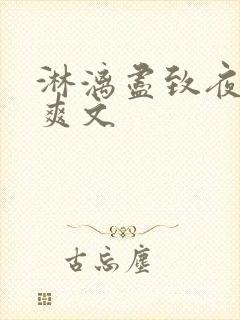 淋漓尽致夜
爽文
古忘尘